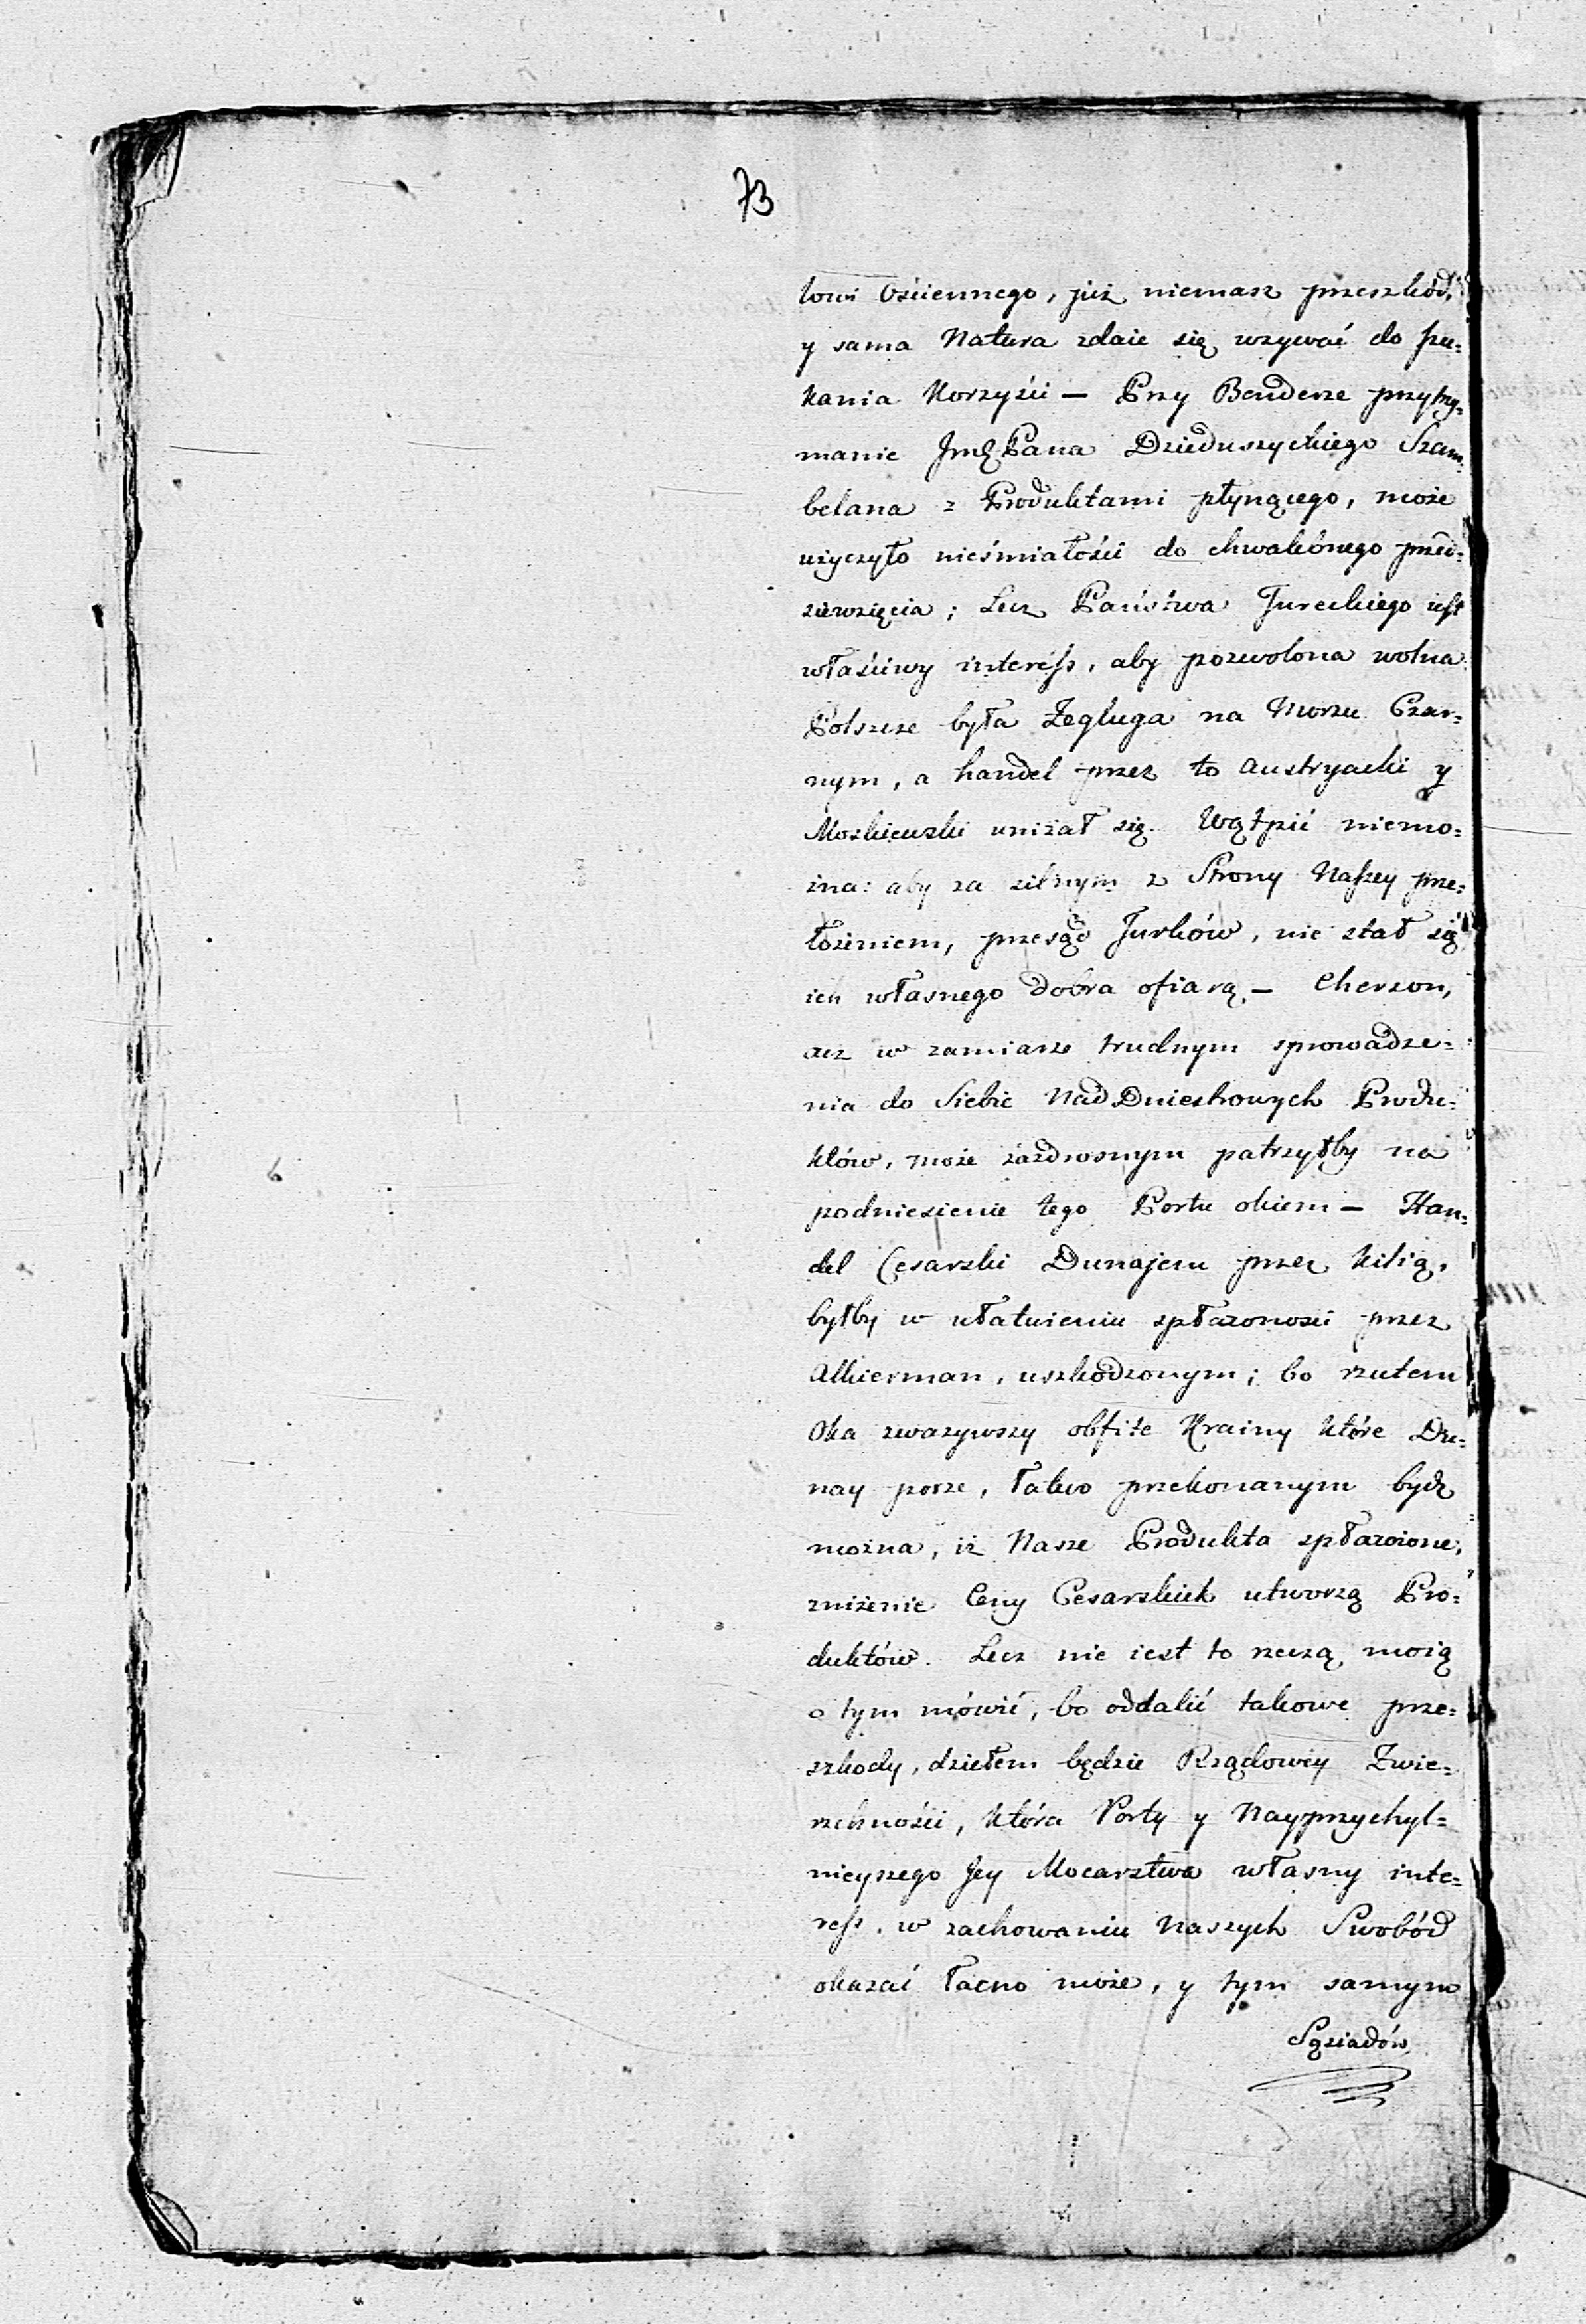 73
towi Ościennego, już niemasz przeszkód,
y sama Natura zdaie się wzywać do szu=
kania Korzyści — Przy Benderze przytrzy=
manie Jmć Pana Dzieduszyckiego Szam=
belana z Produktami płynącego, może
użyczyło nieśmiałości do chwalebnego przed=
zięwzięcia; Lecz Państwa Tureckiego iest
właściwy interess, aby pozwolona wolna
Polszcze była Zegluga na Morzu Czar=
nym, a handel przez to Austryacki y
Moskiewski uniżał się. Wątpić niemo=
żna: aby za silnym z Strony Naszey prze=
łożeniem, przesąd Turków, nie stał się
ich własnego dobra ofiarą. — Cherson,
acz w zamiarze trudnym sprowadze=
nia do Siebie NadDniestrowych Produ=
któw, może zazdrosnym patrzyłby na
podniesienie tego Portu okiem — Han=
del Cesarski Dunajem przez Kilią,
byłby w ułatwieniu spławności przez
Akierman, uszkodzonym; bo rzutem
Oka zważywszy obfite Krainy które Du=
nay porze, łatwo przekonanym bydź
można, iż Nasze Produkta spławione,
zniżenie Ceny Cesarskich utworzą Pro=
duktów. Lecz nie iest to rzeczą moią
o tym mówić, bo oddalić takowe prze=
szkody, dziełem będzie Rządowey Zwie=
rzchności, która Porty y Nayprzychyl=
nieyszego Jey Mocarstwa własny inte=
ress, w zachowaniu Naszych Swobód
okazać łacno może, y tym samym
Sąsiadów